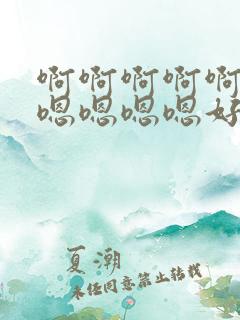 啊啊啊啊啊
嗯嗯嗯嗯好
夏潮
未经同意禁止转载